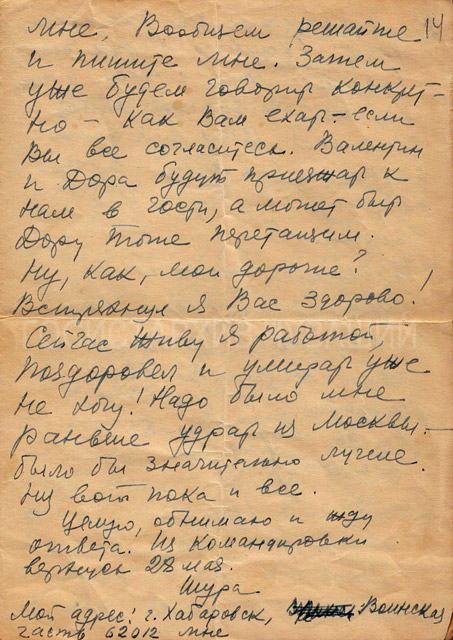 14
мне, Вообщем решайте
и пишите мне. Затем
уже будем говорить конкрет-
но - как Вам ехать - если
Вы все согласитесь. Валентин
и Дора будут приезжать к
нам в гости, а может быть
Дору тоже перетащим.
Ну, как, мои дорогие?
Встряхнул я Вас здорово!
Сейчас живу я работой,
поздоровел и умирать уже
не хочу! Надо было мне
раньше удрать из Москвы. -
было бы значительно лучше.
Ну вот пока и все.
Целую, обнимаю и жду
ответа. Из командировки
вернусь 28 мая.
Шура
Мой адрес: г. Хабаровск, Воинская
часть 62012 мне